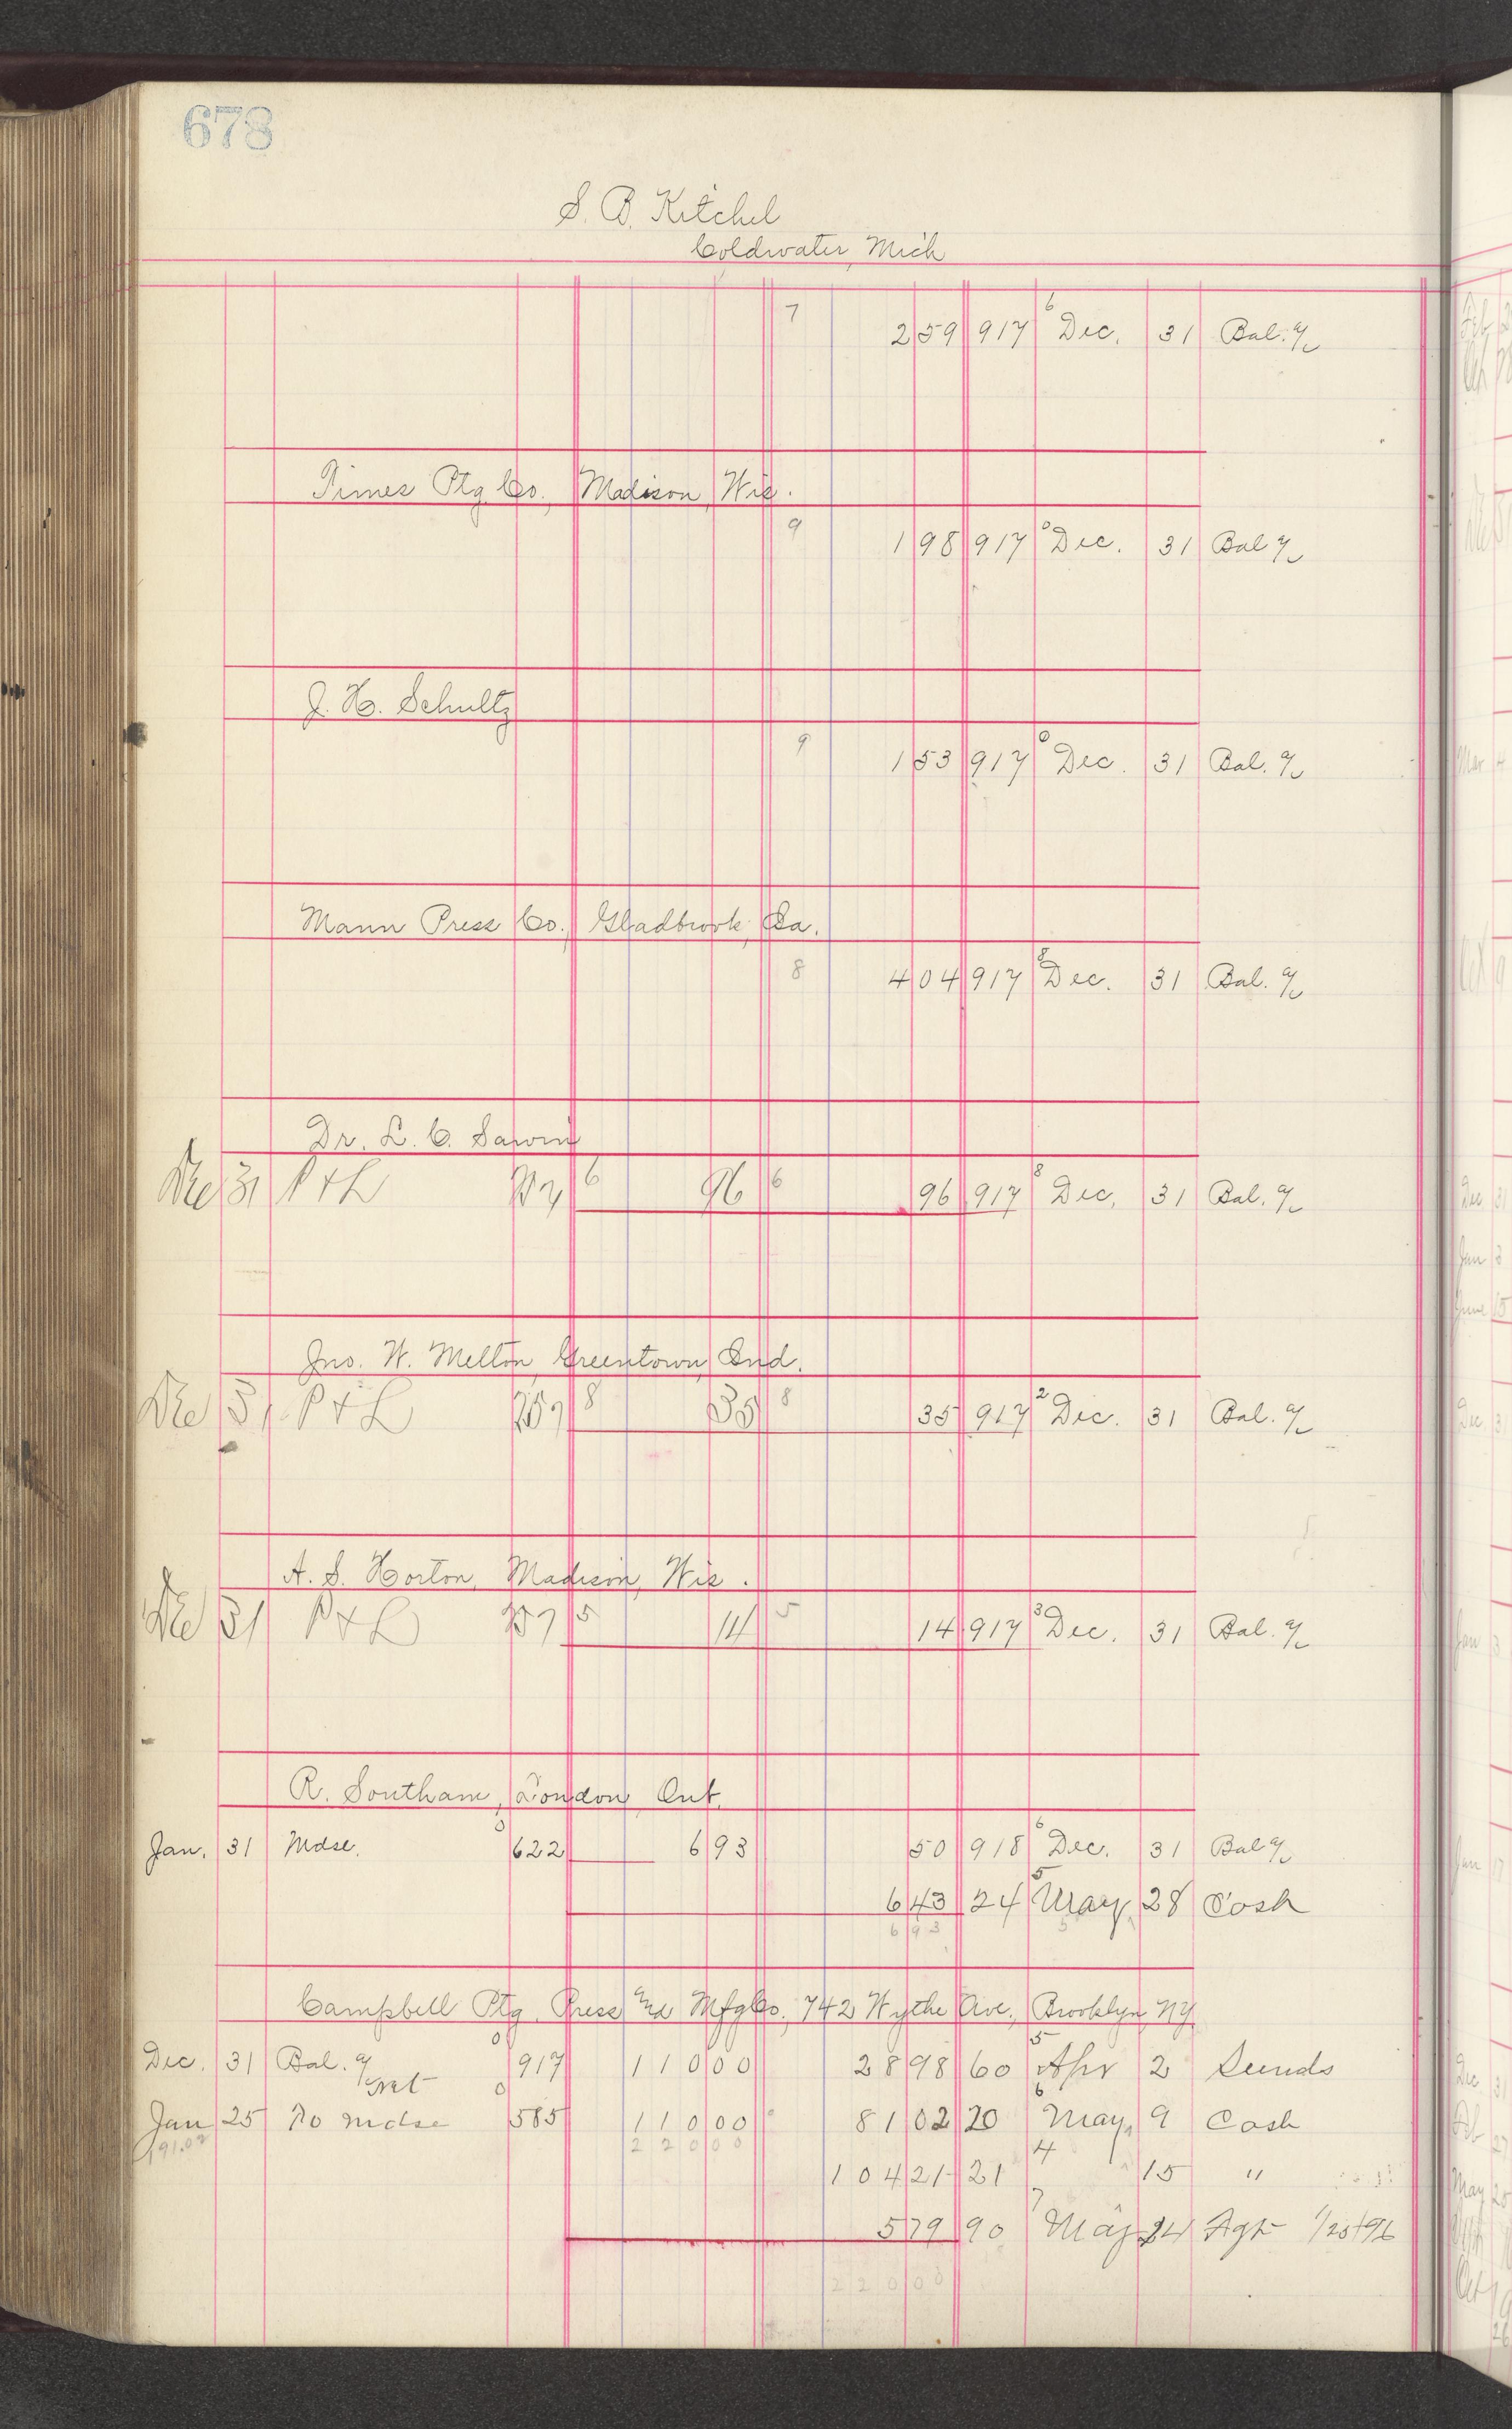 678
S. B. Kitchel
Coldwater, Mich
7 2 59 917 6 Dec. 31 Bal. a/c
Times Ptg. Co., Madison, Wis.
9 1 98 917 0 Dec. 31 Bal a/c
J. H. Schultz
9 1 53 917 0 Dec. 31 Bal. a/c
Mann Press Co., Gladbrook, Ia.
8 4 04 917 8 Dec. 31 Bal. a/c
Dr. L. C. Sawin
Dec 31 P & L 757 6 96 6 96 917 8 Dec. 31 Bal. a/c
Jno. W. Melton, Greentown, Ind.
Dec 31 P & L 757 8 35 8 35 917 2 Dec. 31 Bal. a/c
A. S. Horton, Madison, Wis.
Dec 31 P & L 757 5 14 5 14 917 3 Dec. 31 Bal. a/c
R. Southam, London, Ont.
Jan. 31 Mdse. 0 622 6 93 50 918 6 Dec. 31 Bal a/c
6 43 24 5 May 28 Cash
6 93
Campbell Ptg. Press and Mfg Co., 742 Wythe Ave., Brooklyn, NY
Dec. 31 Bal. a/c 0 917 1 1 0 00 28 98 60 5 Apr 2 Sunds
Jan 25 To Mdse net 0 585 1 1 0 00 81 02 20 6 May 9 Cash
191.02 2 2 0 00
1 0 4 21 21 4 15 "
5 79 90 7 May 24 Agt 1/25/96
2 2 0 00